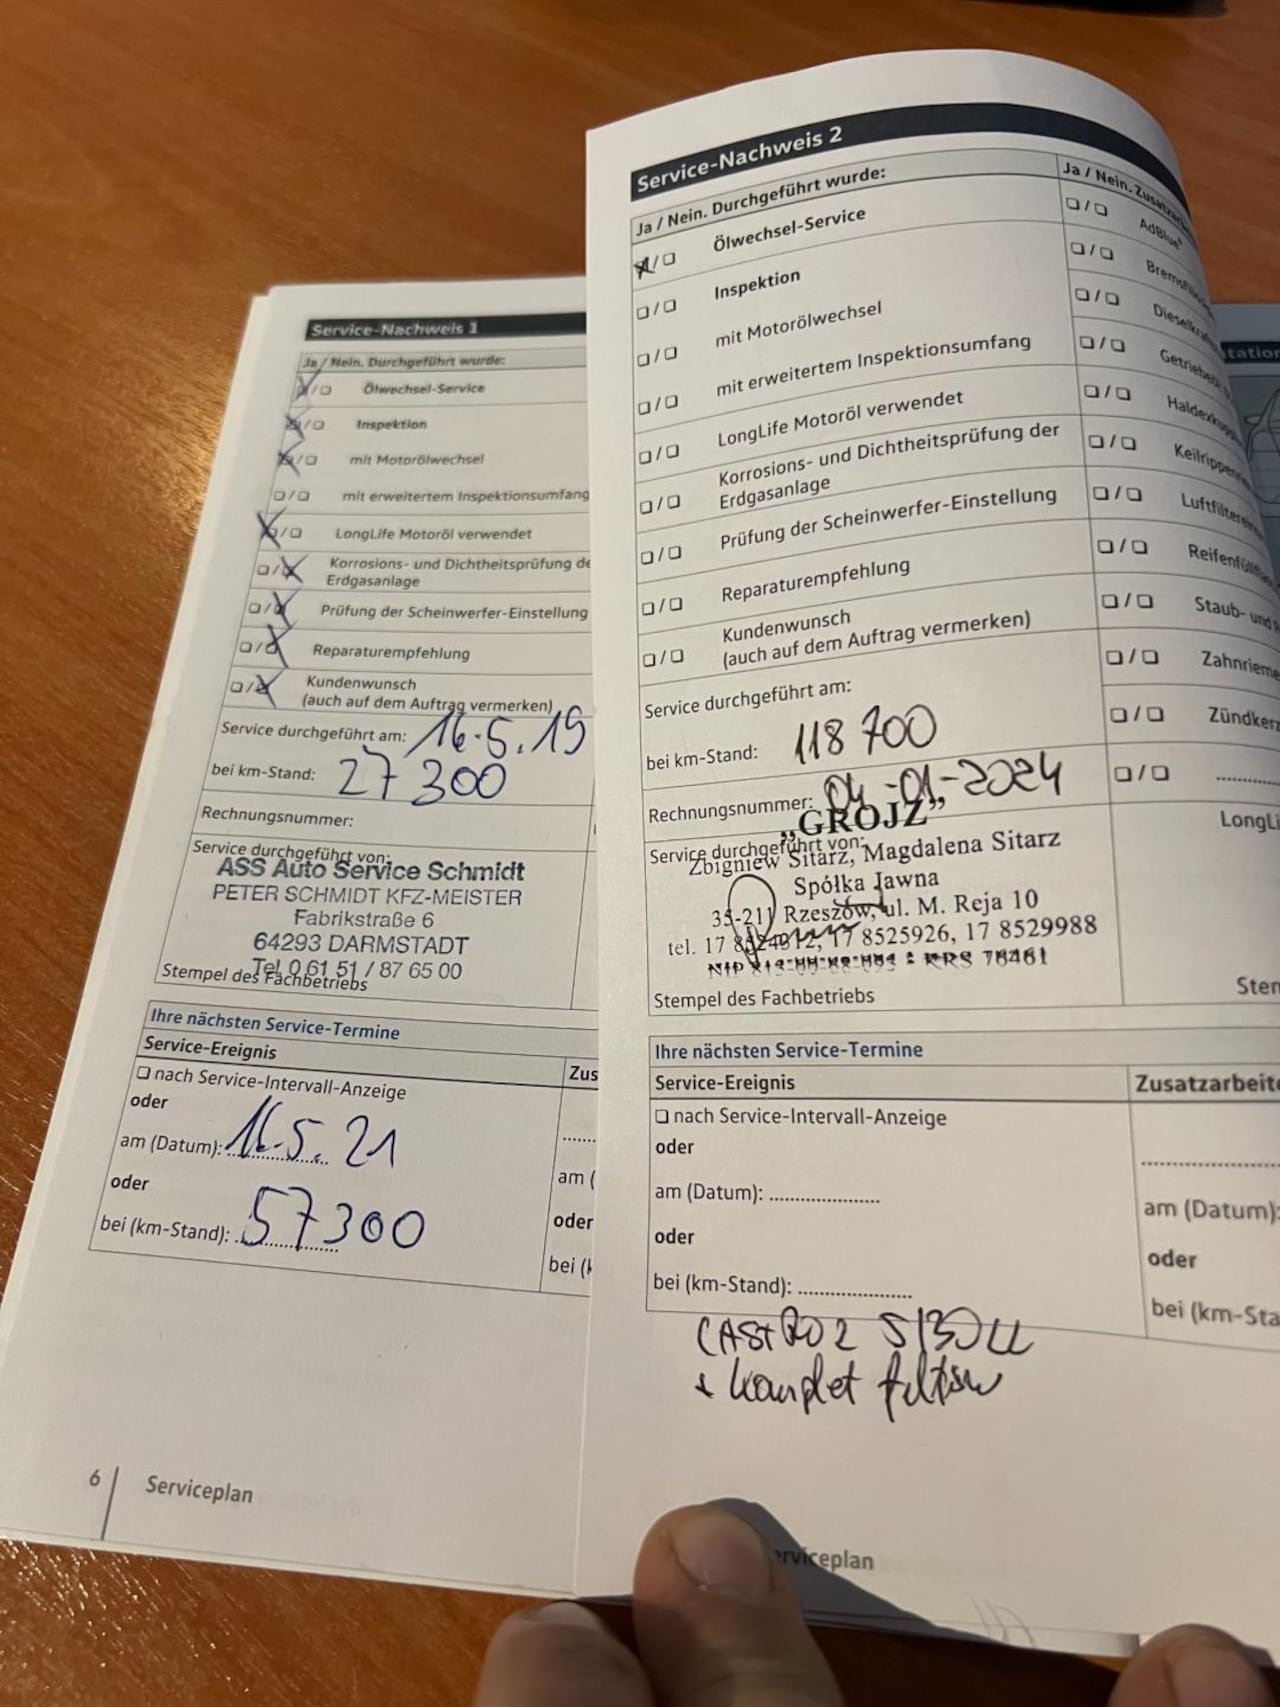 Service-Nachweis 1
Ja / Nein. Durchgeführt wurde:
Ölwechsel-Service
Inspektion
mit Motorölwechsel
mit erweitertem Inspektionsumfang
LongLife Motoröl verwendet
Korrosions- und Dichtheitsprüfung de
Erdgasanlage
Prüfung der Scheinwerfer-Einstellung
Reparaturempfehlung
Kundenwunsch
(auch auf dem Auftrag vermerken)
Service durchgeführt am: 16.5.19
bei km-Stand: 27 300
Rechnungsnummer:
Service durchgeführt von:
ASS Auto Service Schmidt
PETER SCHMIDT KFZ-MEISTER
Fabrikstraße 6
64293 DARMSTADT
Tel. 0 61 51 / 87 65 00
Stempel des Fachbetriebs
Ihre nächsten Service-Termine
Service-Ereignis
Zus
nach Service-Intervall-Anzeige
oder
am (Datum): 16.5.21
am (
oder
oder
bei (km-Stand): 57300
bei (k
6
Serviceplan
Service-Nachweis 2
Ja / Nein. Durchgeführt wurde:
Ölwechsel-Service
Inspektion
mit Motorölwechsel
mit erweitertem Inspektionsumfang
LongLife Motoröl verwendet
Korrosions- und Dichtheitsprüfung der
Erdgasanlage
Prüfung der Scheinwerfer-Einstellung
Reparaturempfehlung
Kundenwunsch
(auch auf dem Auftrag vermerken)
Service durchgeführt am:
bei km-Stand: 118 700
Rechnungsnummer: 04-01-2024
Service durchgeführt von:
„GROJZ”
Zbigniew Sitarz, Magdalena Sitarz
Spółka Jawna
35-211 Rzeszów, ul. M. Reja 10
tel. 17 8524312, 17 8525926, 17 8529988
NIP KRS 78461
Stempel des Fachbetriebs
Ja / Nein. Zusatzar
AdBlue®
Bremsflüs
Dieselkra
Getriebeöl
Haldexkupp
Keilrippen
Luftfilterein
Reifenfüll
Staub- und
Zahnrieme
Zündkerz
LongLi
Stem
tation
Ihre nächsten Service-Termine
Service-Ereignis
Zusatzarbeite
nach Service-Intervall-Anzeige
oder
am (Datum):
am (Datum):
oder
oder
bei (km-Stand):
bei (km-Sta
CASTROL 5/30 LL
+ komplet filtrów
erviceplan